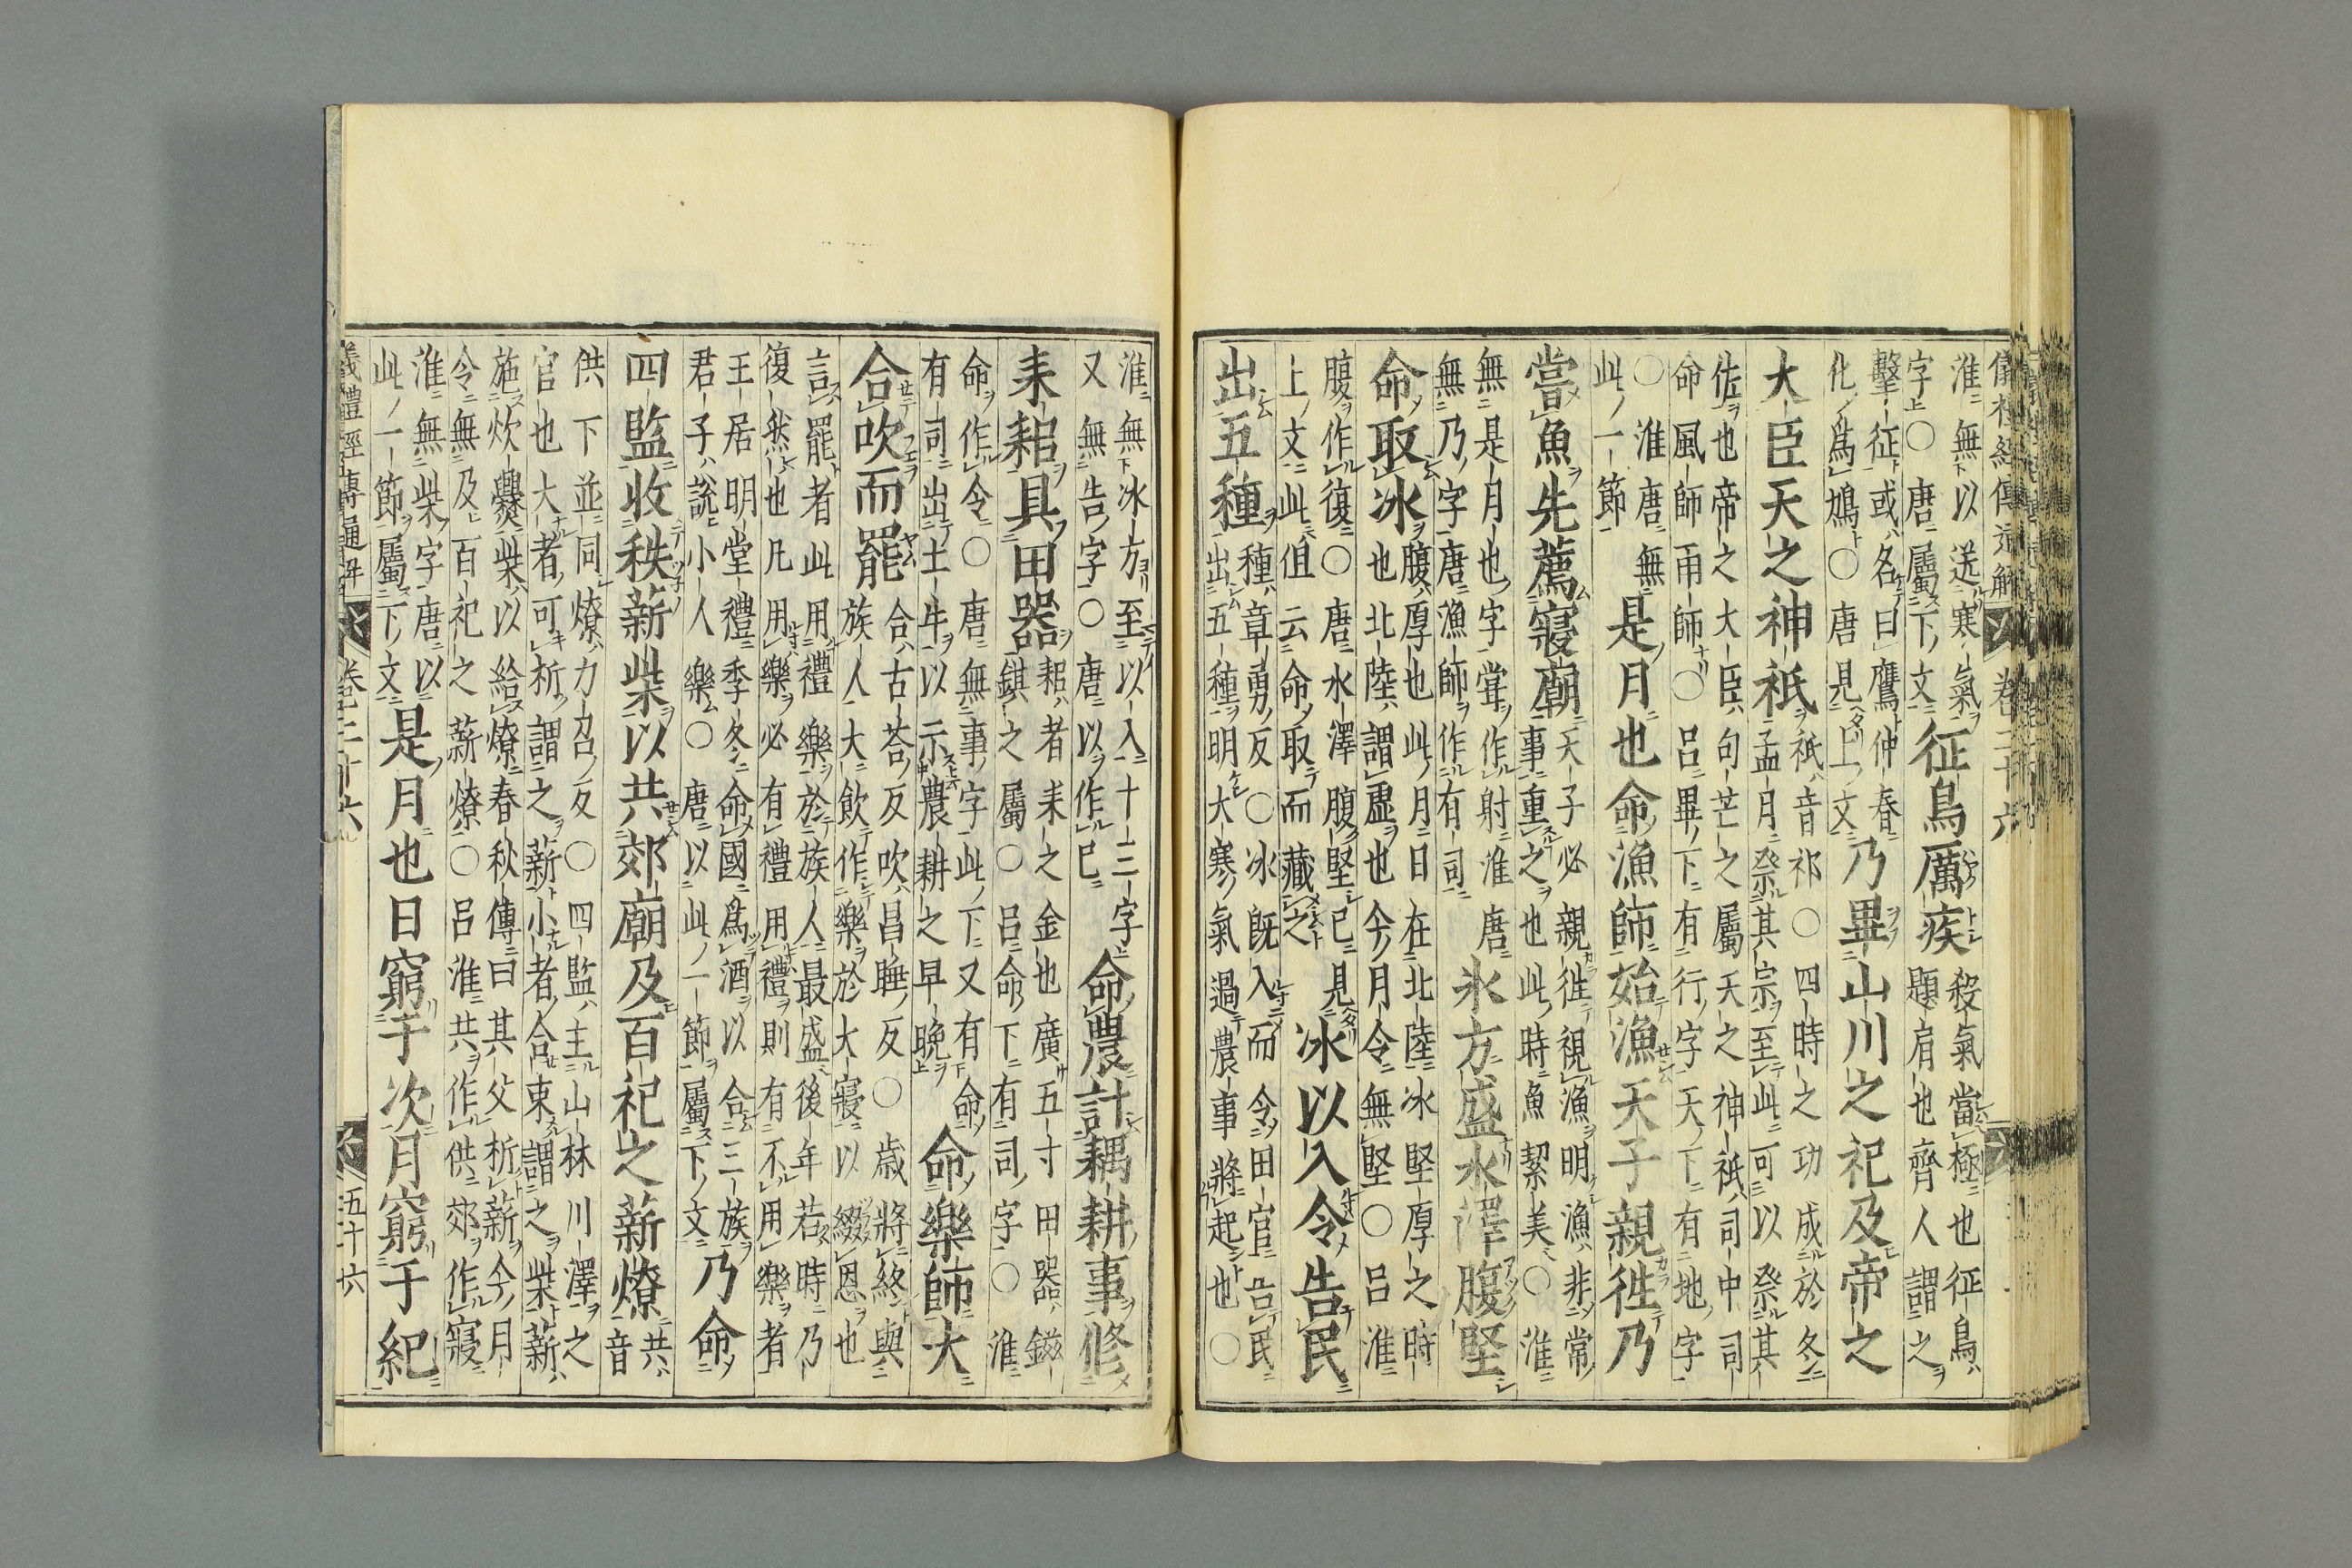 儀禮經傳通解 卷二十六
淮無以送寒氣
字○唐屬下文
征鳥厲疾
殺氣當極也征鳥
題肩也齊人謂之
擊征或名曰鷹仲春
化爲鳩○唐見上文
乃畢山川之祀及帝之
大臣天之神祇
祇音祁○四時之功成於冬
孟月祭其宗至此可以祭其
佐也帝之大臣句芒之屬天之神祇司中司
命風師雨師○呂畢下有行字天下有地字
○淮唐無
此一節
是月也命漁師始漁天子親徃乃
嘗魚先薦寢廟
天子必親徃視漁明漁非常
事重之也此時魚絜美○淮
無是月也字嘗作射淮唐
無乃字唐漁師作有司
氷方盛水澤腹堅
命取冰
腹厚也此月日在北陸冰堅厚之時
也北陸謂虛也今月令無堅○呂淮
腹作復○唐水澤腹堅已見
上文此但云命取而藏之
冰以入令告民
出五種
種章勇反○冰既入而令田官告民
出五種明大寒氣過農事將起也○
淮無冰方至以入十三字
又無告字○唐以作已
命農計耦耕事修
耒耜具田器
耜者耒之金也廣五寸田器鎡
錤之屬○呂命下有司字○淮
命作令○唐無事字此下又有命
有司出土牛以示農耕之早晚
命樂師大
合吹而罷
合古荅反吹昌睡反○歲將終與
族人大飲作樂於大寢以綴恩也
言罷者此用禮樂於族人最盛後年若時乃
復然也凡用樂必有禮用禮則有不用樂者
王居明堂禮季冬命國爲酒以合三族
君子說小人樂○唐以此一節屬下文
乃命
四監收秩薪柴以共郊廟及百祀之薪燎
共
音
供下並同燎力召反○四監主山林川澤之
官也大者可析謂之薪小者合束謂之柴薪
施炊爨柴以給燎春秋傳曰其父析薪今月
令無及百祀之薪燎○呂淮共作供郊作寢
淮無柴字唐以
此一節屬下文
是月也日窮于次月窮于紀
儀禮經傳通解 卷二十六 五十六